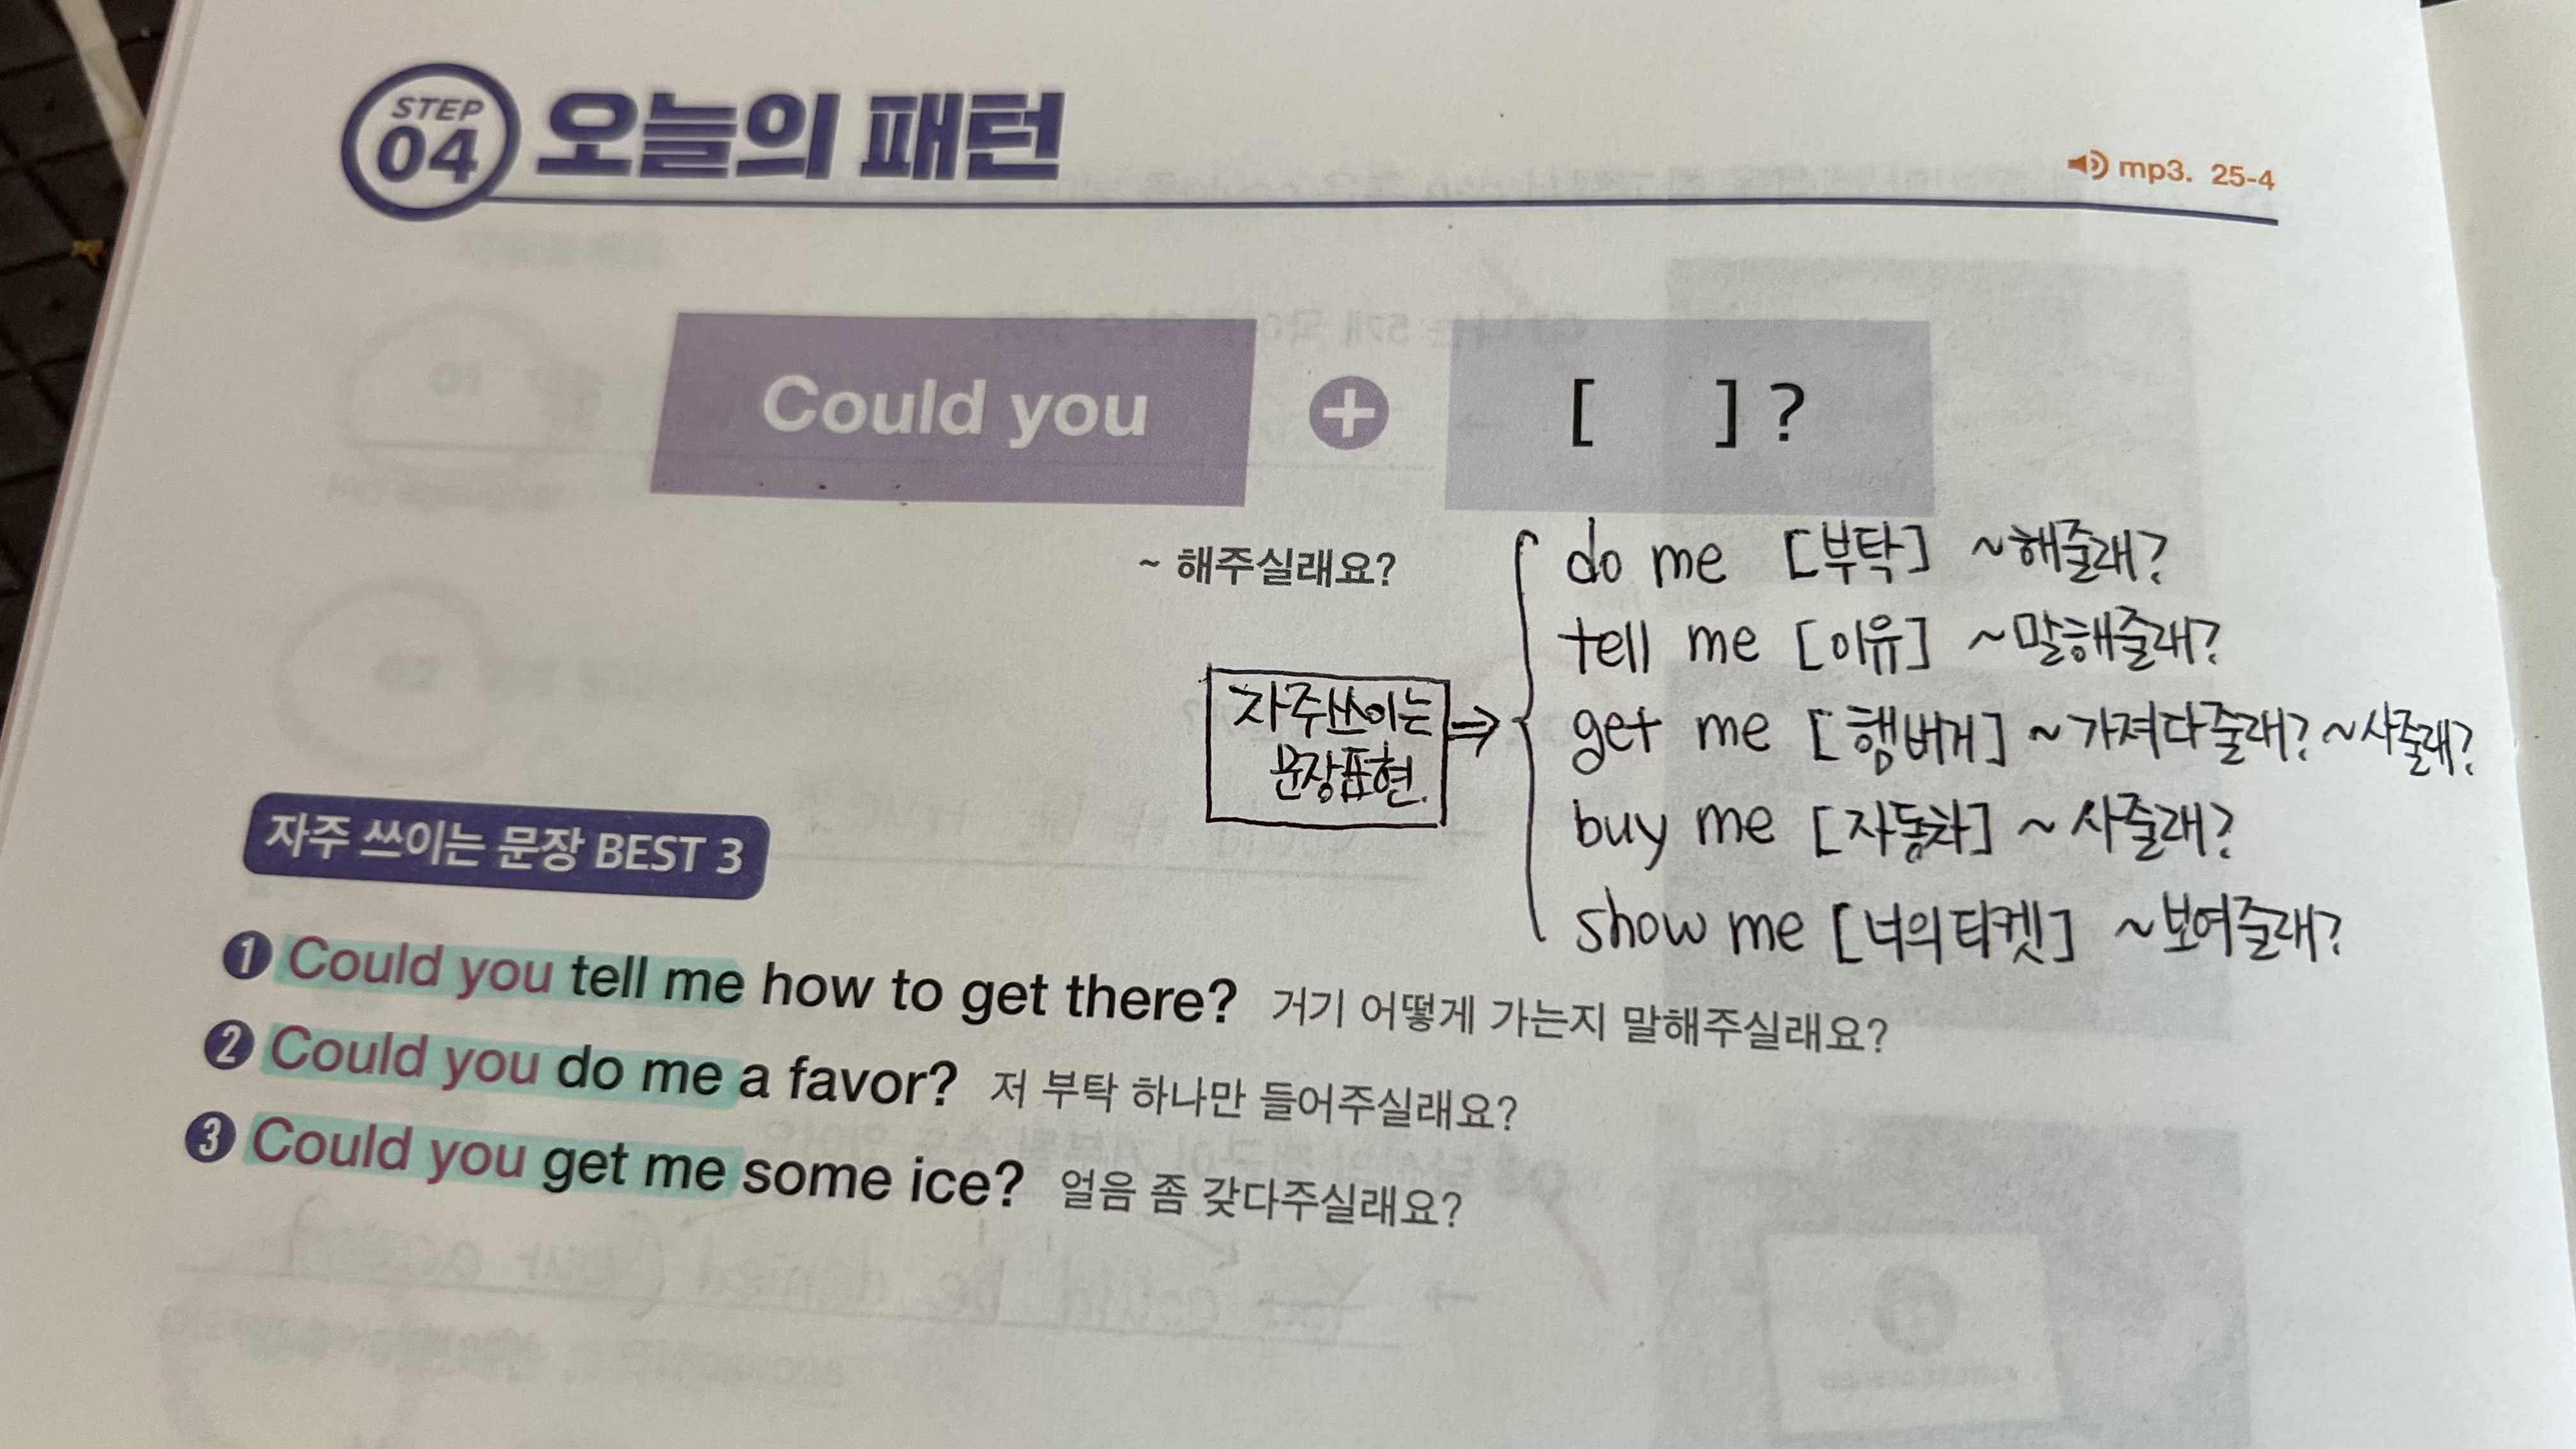 STEP
04 오늘의 패턴
mp3. 25-4
Could you + [ ] ?
~ 해주실래요?
do me [부탁] ~해줄래?
tell me [이유] ~말해줄래?
자주쓰이는
문장표현. ⇒
get me [햄버거] ~가져다줄래? ~사줄래?
buy me [자동차] ~사줄래?
show me [너의티켓] ~보여줄래?
자주 쓰이는 문장 BEST 3
1 Could you tell me how to get there? 거기 어떻게 가는지 말해주실래요?
2 Could you do me a favor? 저 부탁 하나만 들어주실래요?
3 Could you get me some ice? 얼음 좀 갖다주실래요?